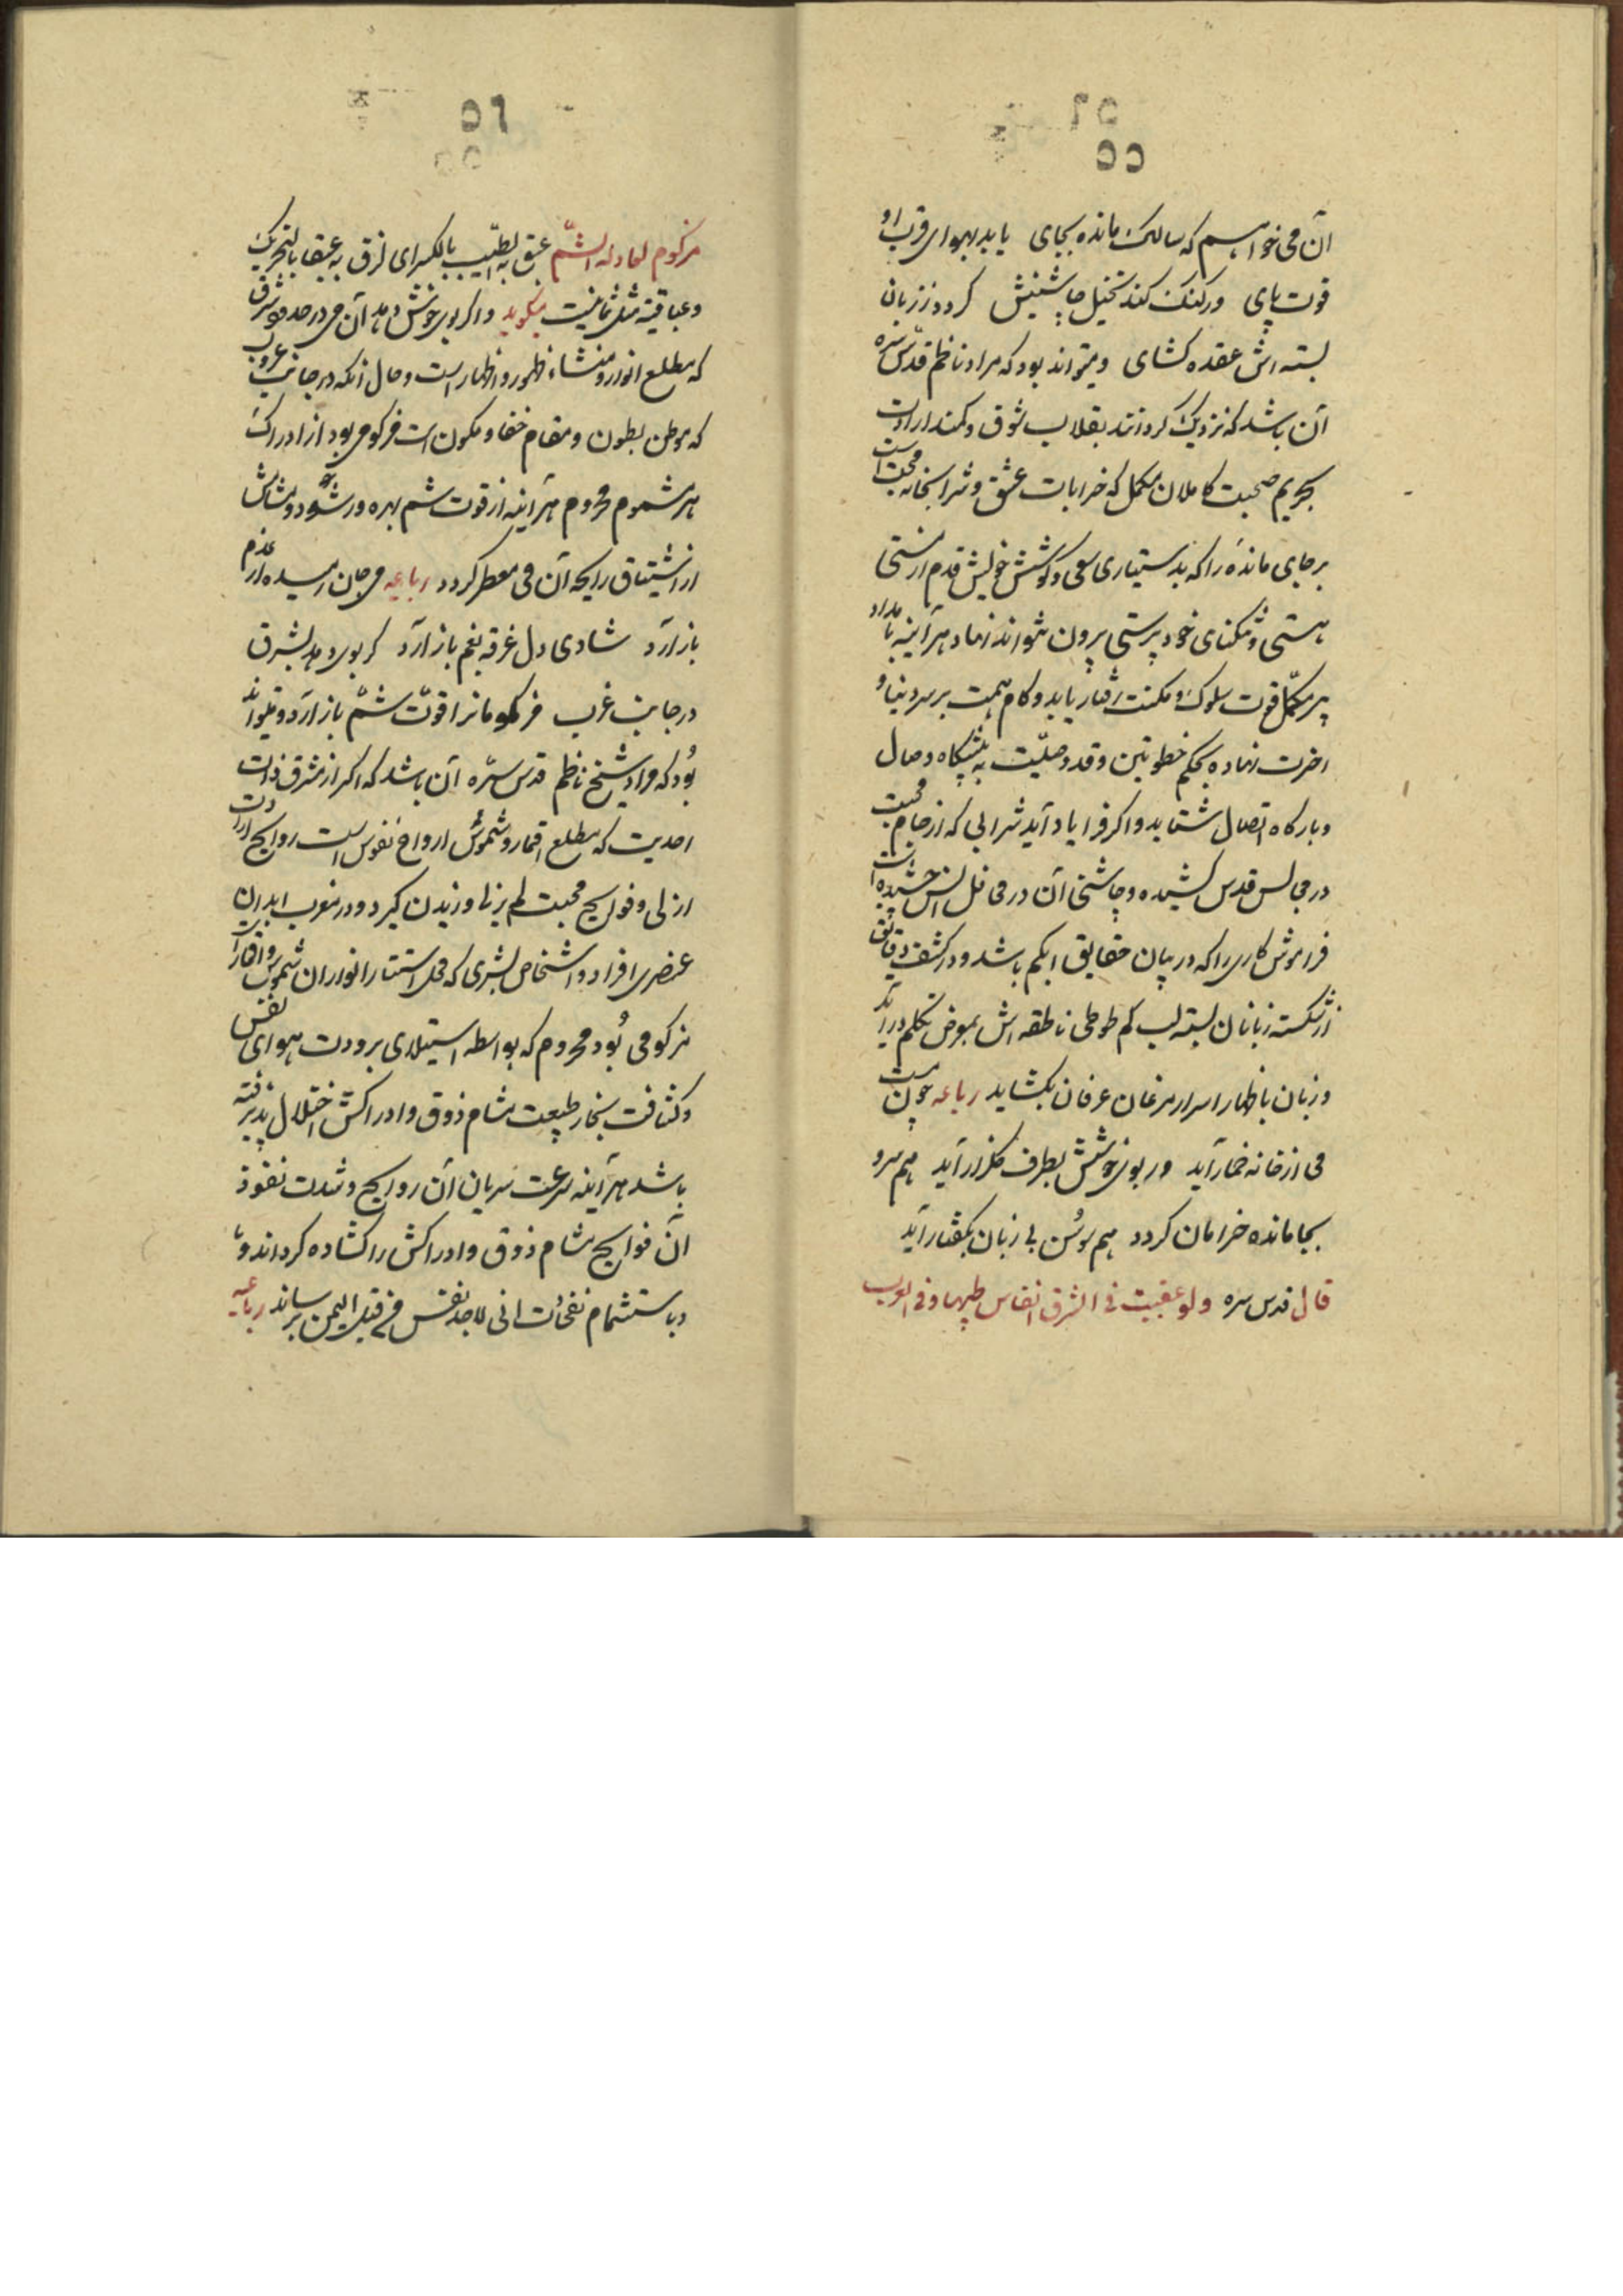 ۵۵
آن می خواهم که سالک مانده بجای یابد بهوای قرب او
قوت پای ور گنک کند تخیل چاشنیش گردد ز زبان
بسته اش عقده کشای ومیتواند بود که مراد ناظم قدس سره
آن باشد که نزدیک کردانند بقلاب شوق وکمند ارادت
بحریم صحبت کاملان مکمل که خرابات عشق وشرابخانه محبت است
برجای ماندۀ را که بدستیاری سعی وکوشش خویش قدم از مستی
هستی وتنکنای خود پرستی بیرون نتواند نهاد هرآینه بامداد
پیر مکمل قوت سلوک ومکنت رفتار یابد وکام همت بر سر دنیا و
اخرت نهاده بحکم خطوتین وقد وصلت به پیشکاه وصال
وبارکاه اتصال شتابد واکر فرا یاد آید شرابی که از جام محبت
در مجالس قدس کشیده وچاشنی آن در محافل انس چشیده است
فراموش کاری را که در بیان حقایق ابکم باشد ودر کشف دقایق
از شکسته زبانان بسته لب کم طوطی ناطقه اش بمعرض تکلم در آید
وزبان باظهار اسرار مرغان عرفان بکشاید رباعیه چون مست
می از خانه خمار آید ور بوی خوشش بطرف گلزار آید هم سرو
بجا مانده خرامان کردد هم سوسن بی زبان بکفتار آید
قال قدس سره ولو عبقت فی الشرق انفاس طیبها وفی الغرب
۵۶
مزکوم لعاد له الشم عبق به الطیب بالکسر ای لزق به عبقا بالتحریک
وعباقیة مثل ثمانیة میکوید واکر بوی خوش دهد آن می در حدود شرق
که مطلع انوار ومنشاء ظهور واظهار است وحال آنکه در جانب غروب
که موطن بطون ومقام خفا وکمون است مزکومی بود از ادراک
هر مشموم محروم هرآینه از قوت شم بهره ور شود ومشامش
از اشتیاق رایحه آن می معطر کردد رباعیه می جان رمیده از عدم
باز آرد شادی دل غرقه بغم باز آرد کر بوی دهد بشرق
در جانب غرب مزکومانرا قوت شم باز آرد ومیتواند
بود که مراد شیخ ناظم قدس سره آن باشد که اکر از مشرق ذات
احدیت که مطلع اقمار وشموس ارواح نفوس است روایح ارادت
ازلی وفوایح محبت لم یزلی وزیدن کیرد ودر مغرب ابدان
عنصری افراد واشخاص بشری که محل استتار انوار ان شموس واقمار است
مزکومی بود محروم که بواسطه استیلای برودت هوای نفس
وکثافت بخار طبیعت مشام ذوق وادراکش اختلال پذیرفته
باشد هرآینه سرعت سریان آن روایح وشدت نفوذ
آن فوایح مشام ذوق وادراکش را کشاده کرداند
وباستشمام نفحات انی لاجد نفس من قبل الیمن برساند رباعیه